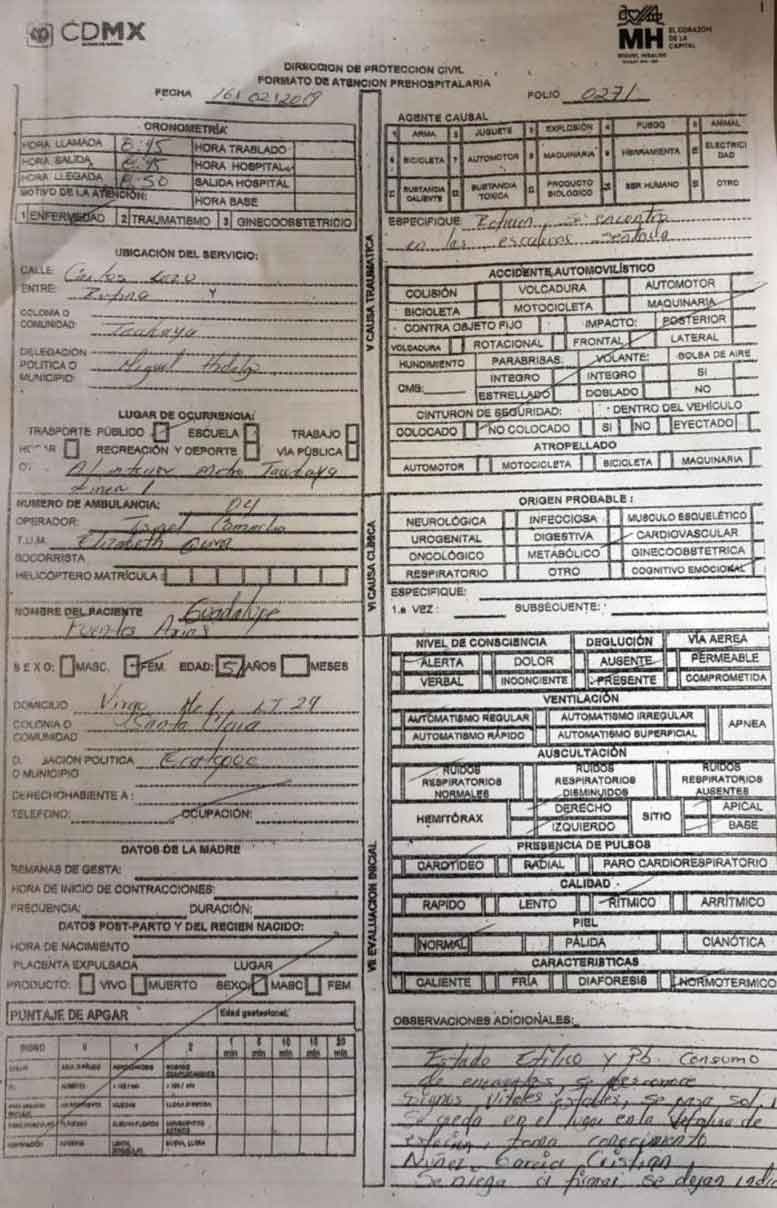 CDMX
CIUDAD DE MÉXICO
MH
MIGUEL HIDALGO
EL CORAZÓN
DE LA
CAPITAL
1
DIRECCION DE PROTECCION CIVIL
FORMATO DE ATENCION PREHOSPITALARIA
FECHA 16/02/2019
FOLIO 0271
CRONOMETRÍA
HORA LLAMADA 8:45 HORA TRABLADO
HORA SALIDA 8:45 HORA HOSPITAL
HORA LLEGADA 8:50 SALIDA HOSPITAL
MOTIVO DE LA ATENCIÓN: HORA BASE
1 ENFERMEDAD 2 TRAUMATISMO 3 GINECOOBSTETRICIO
UBICACIÓN DEL SERVICIO:
CALLE: Carlos Lazo
ENTRE: Y
COLONIA O
COMUNIDAD: Tacubaya
DELEGACION
POLITICA O
MUNICIPIO: Miguel Hidalgo
LUGAR DE OCURRENCIA:
TRASPORTE PÚBLICO ESCUELA TRABAJO
RECREACIÓN Y DEPORTE VÍA PÚBLICA
Al interior metro Tacubaya
Linea 1
NUMERO DE AMBULANCIA: 04
OPERADOR: Israel Camacho
T.U.M. Elizabeth
SOCORRISTA
HELICÓPTERO MATRÍCULA:
NOMBRE DEL PACIENTE Guadalupe
Fuentes Arias
SEXO: MASC. FEM. EDAD: 51 AÑOS MESES
DOMICILIO Virgo LT 24
COLONIA O Santa Clara
COMUNIDAD
JACIÓN POLITICA Ecatepec
O MUNICIPIO
DERECHOHABIENTE A:
TELEFONO: OCUPACIÓN:
DATOS DE LA MADRE
SEMANAS DE GESTA:
HORA DE INICIO DE CONTRACCIONES:
FRECUENCIA: DURACIÓN:
DATOS POST-PARTO Y DEL RECIEN NACIDO:
HORA DE NACIMIENTO
PLACENTA EXPULSADA LUGAR
PRODUCTO: VIVO MUERTO SEXO: MASC FEM
PUNTAJE DE APGAR Edad gestacional:
SIGNO 0 1 2 1 min 5 min 10 min 15 min 20 min
V CAUSA TRAUMATICA
VI CAUSA CLINICA
VII EVALUACION INICIAL
AGENTE CAUSAL
1 ARMA 2 JUGUETE 3 EXPLOSIÓN 4 FUEGO 5 ANIMAL
6 BICICLETA 7 AUTOMOTOR 8 MAQUINARIA 9 HERRAMIENTA 10 ELECTRICI
DAD
11 SUSTANCIA CALIENTE 12 SUSTANCIA TOXICA 13 PRODUCTO BIOLOGICO 14 SER HUMANO 15 OTRO
ESPECIFIQUE se encontro
en las escaleras sentada
ACCIDENTE AUTOMOVILÍSTICO
COLISIÓN VOLCADURA AUTOMOTOR
BICICLETA MOTOCICLETA MAQUINARIA
CONTRA OBJETO FIJO IMPACTO: POSTERIOR
VOLCADURA ROTACIONAL FRONTAL LATERAL
HUNDIMIENTO PARABRIBAS: VOLANTE: BOLSA DE AIRE
INTEGRO INTEGRO SI
CMS: ESTRELLADO DOBLADO NO
CINTURON DE SEGURIDAD: DENTRO DEL VEHÍCULO
COLOCADO NO COLOCADO SI NO EYECTADO
ATROPELLADO
AUTOMOTOR MOTOCICLETA BICICLETA MAQUINARIA
ORIGEN PROBABLE:
NEUROLÓGICA INFECCIOSA MUSCULO ESQUELÉTICO
UROGENITAL DIGESTIVA CARDIOVASCULAR
ONCOLÓGICO METABÓLICO GINECOOBSTETRICA
RESPIRATORIO OTRO COGNITIVO EMOCIONAL
ESPECIFIQUE:
1.a VEZ: SUBSECUENTE:
NIVEL DE CONSCIENCIA DEGLUCIÓN VÍA AEREA
ALERTA DOLOR AUSENTE PERMEABLE
VERBAL INCONCIENTE PRESENTE COMPROMETIDA
VENTILACIÓN
AUTOMATISMO REGULAR AUTOMATISMO IRREGULAR APNEA
AUTOMATISMO RÁPIDO AUTOMATISMO SUPERFICIAL
AUSCULTACIÓN
RUIDOS RESPIRATORIOS NORMALES RUIDOS RESPIRATORIOS DISMINUIDOS RUIDOS RESPIRATORIOS AUSENTES
HEMITÓRAX DERECHO SITIO APICAL
IZQUIERDO BASE
PRESENCIA DE PULSOS
CAROTIDEO RADIAL PARO CARDIORESPIRATORIO
CALIDAD
RAPIDO LENTO RÍTMICO ARRÍTMICO
PIEL
NORMAL PÁLIDA CIANÓTICA
CARACTERISTICAS
CALIENTE FRÍA DIAFORESIS NORMOTERMICO
OBSERVACIONES ADICIONALES:
Estado Etilico y Pb. Consumo
de enervantes, se desconoce
Signos Vitales estables, se pasa
Se queda en el lugar en la de
estacion, toma conocimiento
Nuñez Garcia Cristian
Se niega a firmar se dejan